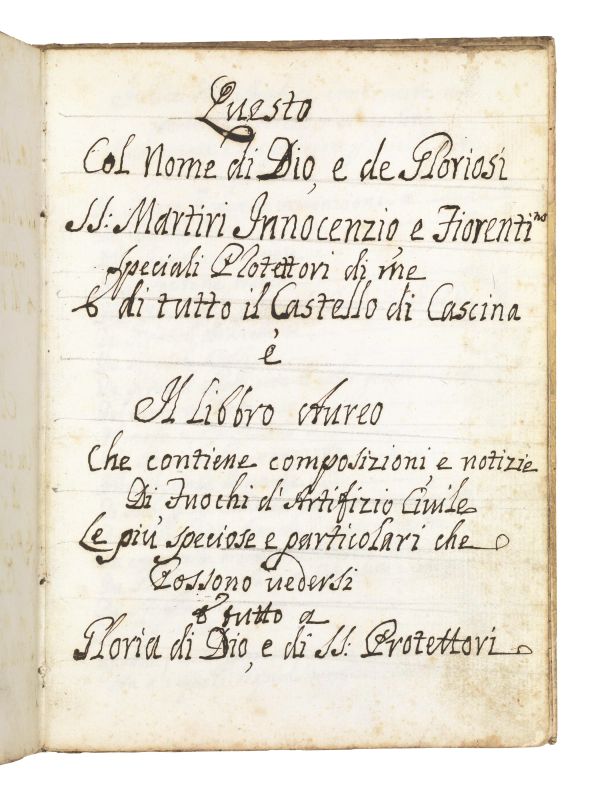 Questo
Col Nome di Dio, e de Gloriosi
SS: Martiri Innocenzio, e Fiorentino
speciali Protettori di me
e di tutto il Castello di Cascina
è
Il Libbro Aureo
Che contiene composizioni e notizie
Di Fuochi d'Artifizio Civile
Le più speciose e particolari che
Possono vedersi
e tutto a
Gloria di Dio, e di SS: Protettori